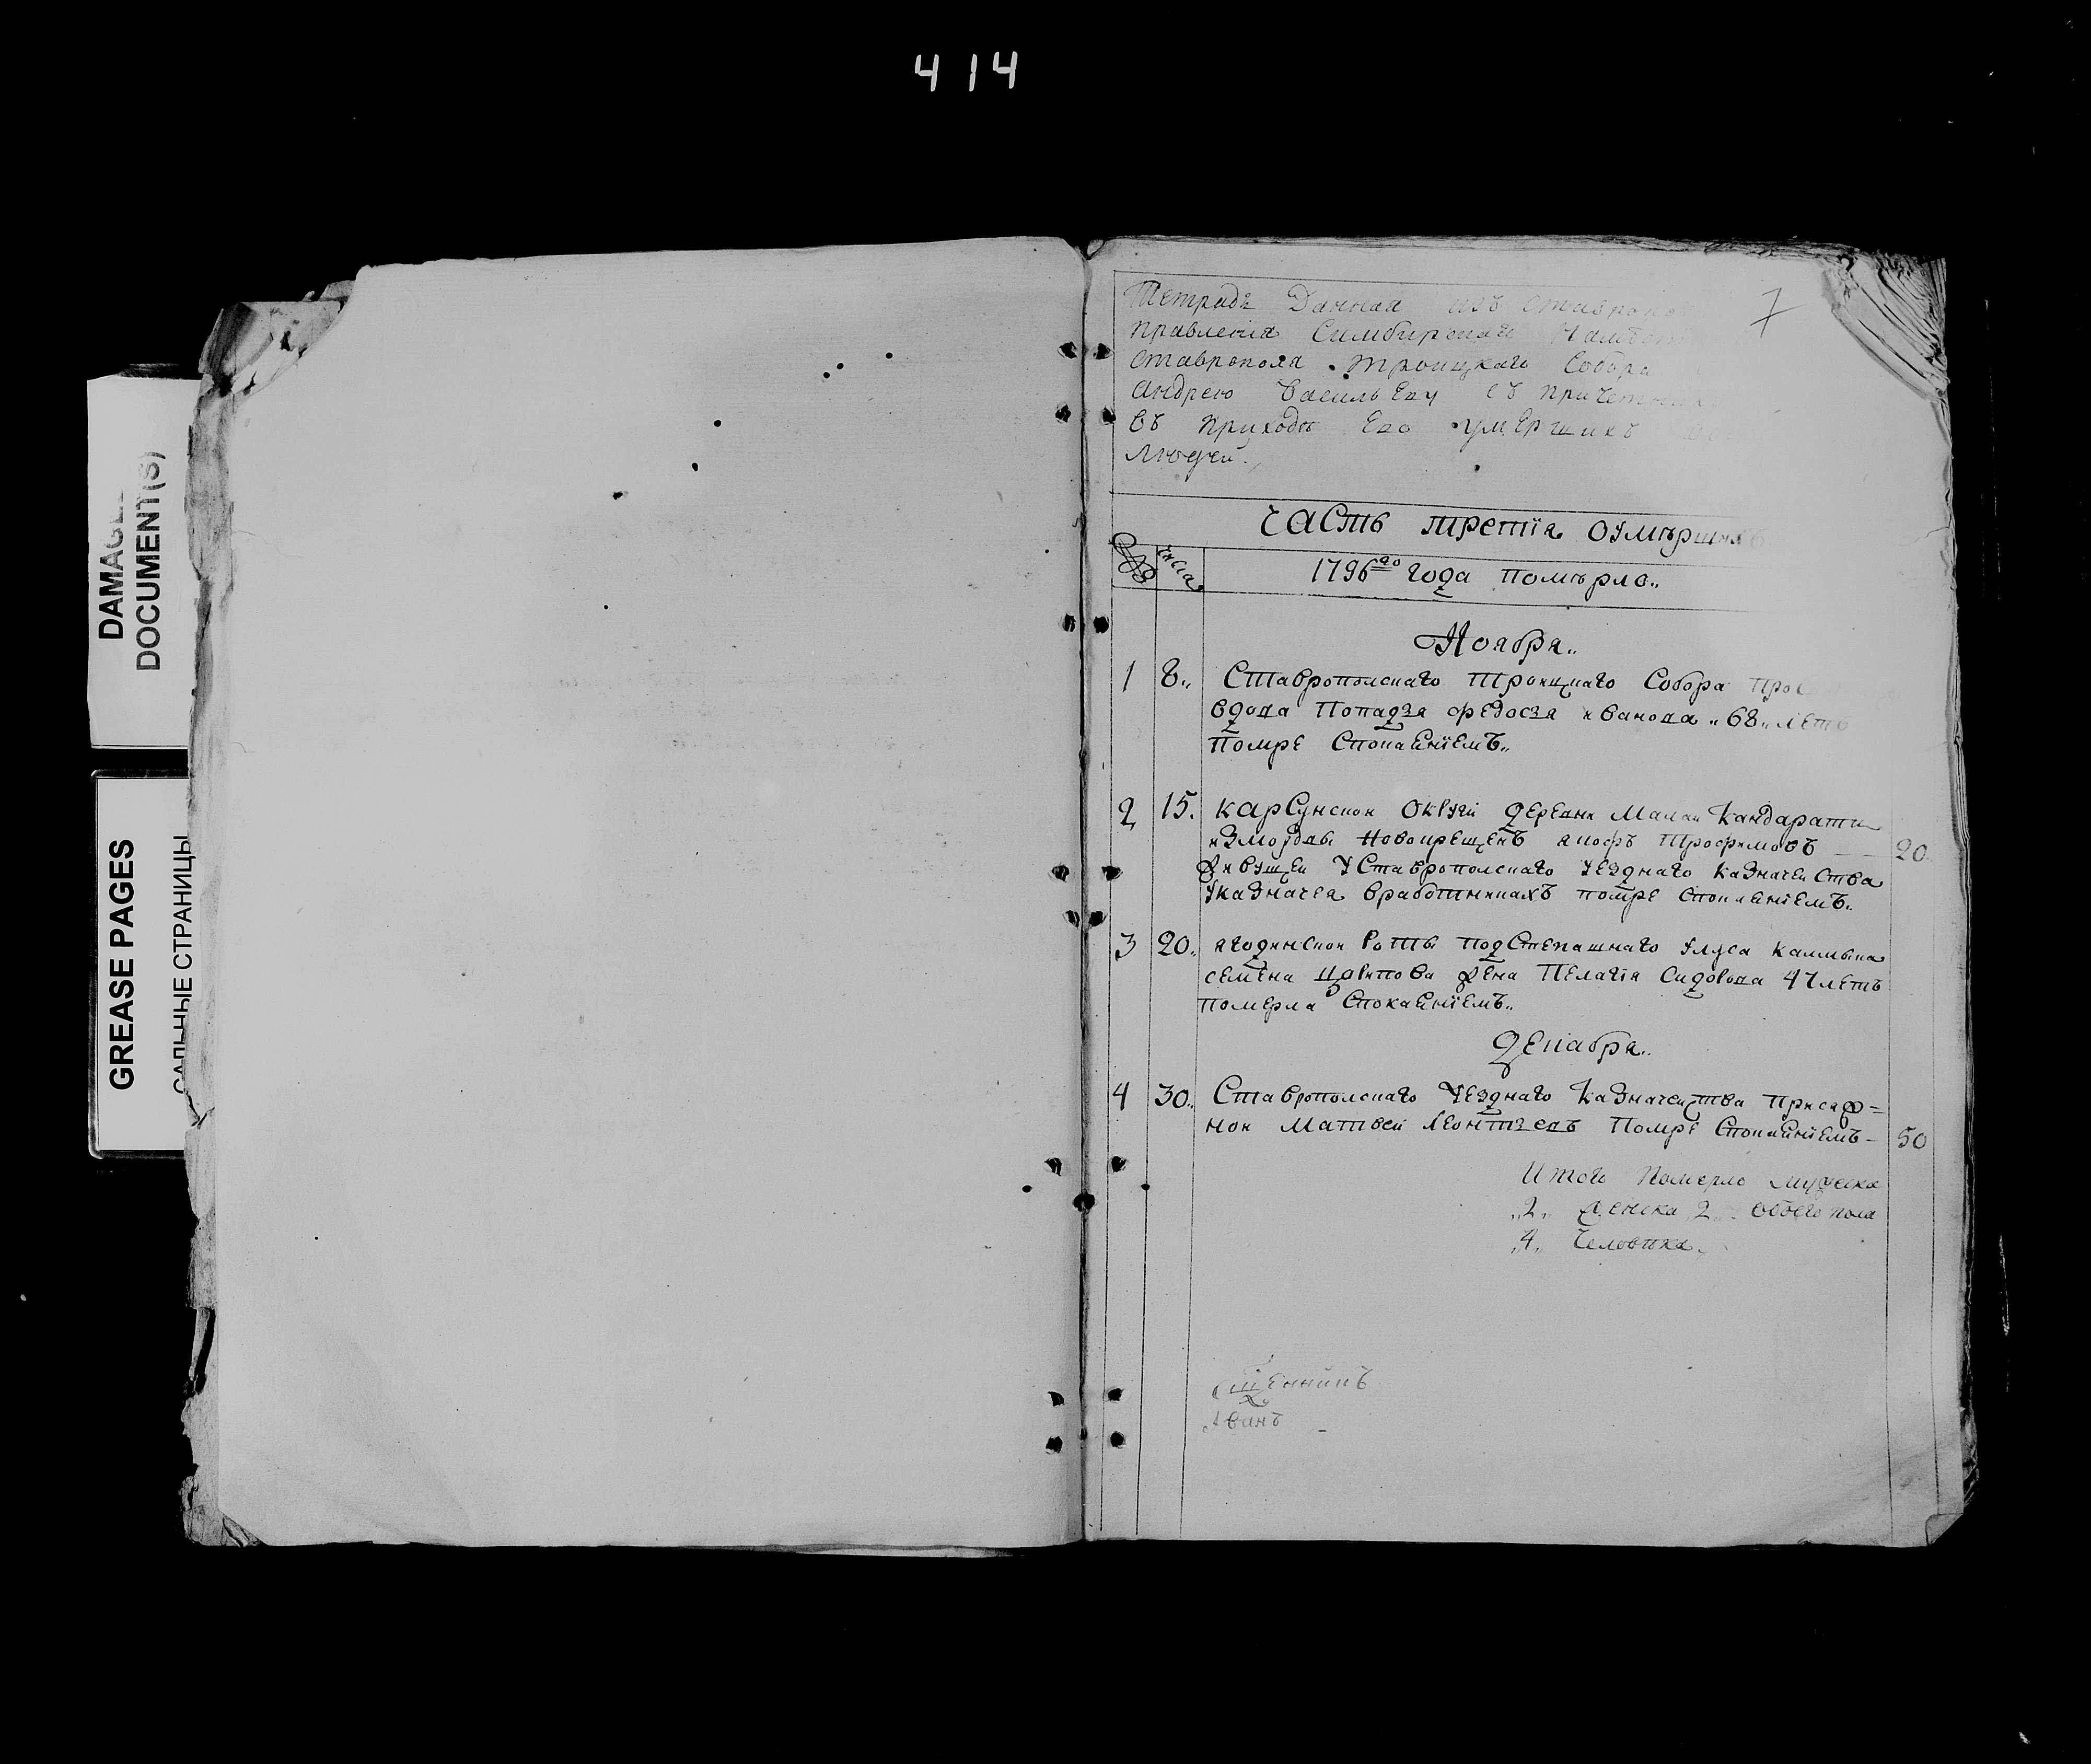 414
DAMAGED
DOCUMENT(S)
GREASE PAGES
САЛЬНЫЕ СТРАНИЦЫ
7
Тетрадь Данная изъ Ставропо
правленія Симбирскаго Намѣст
Ставрополя Троицкаго Собора
Андрею Васильеву съ причетник
въ приходѣ Его умершихъ
людей.
Часть третія оумѣрших
Числа
1796го года помѣрло
Ноября
1 8 Ставрополскаго Троицкаго Собора
вдова Попадья Федосья Иванова 68 летъ
Помре Спокаеніемъ
2 15. Карсунской Округи деревни Малой Кандарати
измордвы Новокрещенъ Якофъ Трофимовъ 20
живущей УСтаврополскаго Уезднаго казначейства
Указначея вработникахъ помре Спокаеніемъ
3 20. Ягодинской Роты подСтепашнаго Улуса калмыка
семена жена Пелагія Сидорова 47 летъ
померла Спокаеніемъ
Декабря
4 30. Ставрополскаго Уезднаго Казначейства Присяж=
ной Матвей Леонтьевъ Помре Спокаеніемъ 50
Итого Померло мужеска
2 женска 2 обоего пола
4 Человѣка
Сщенникъ
Иванъ